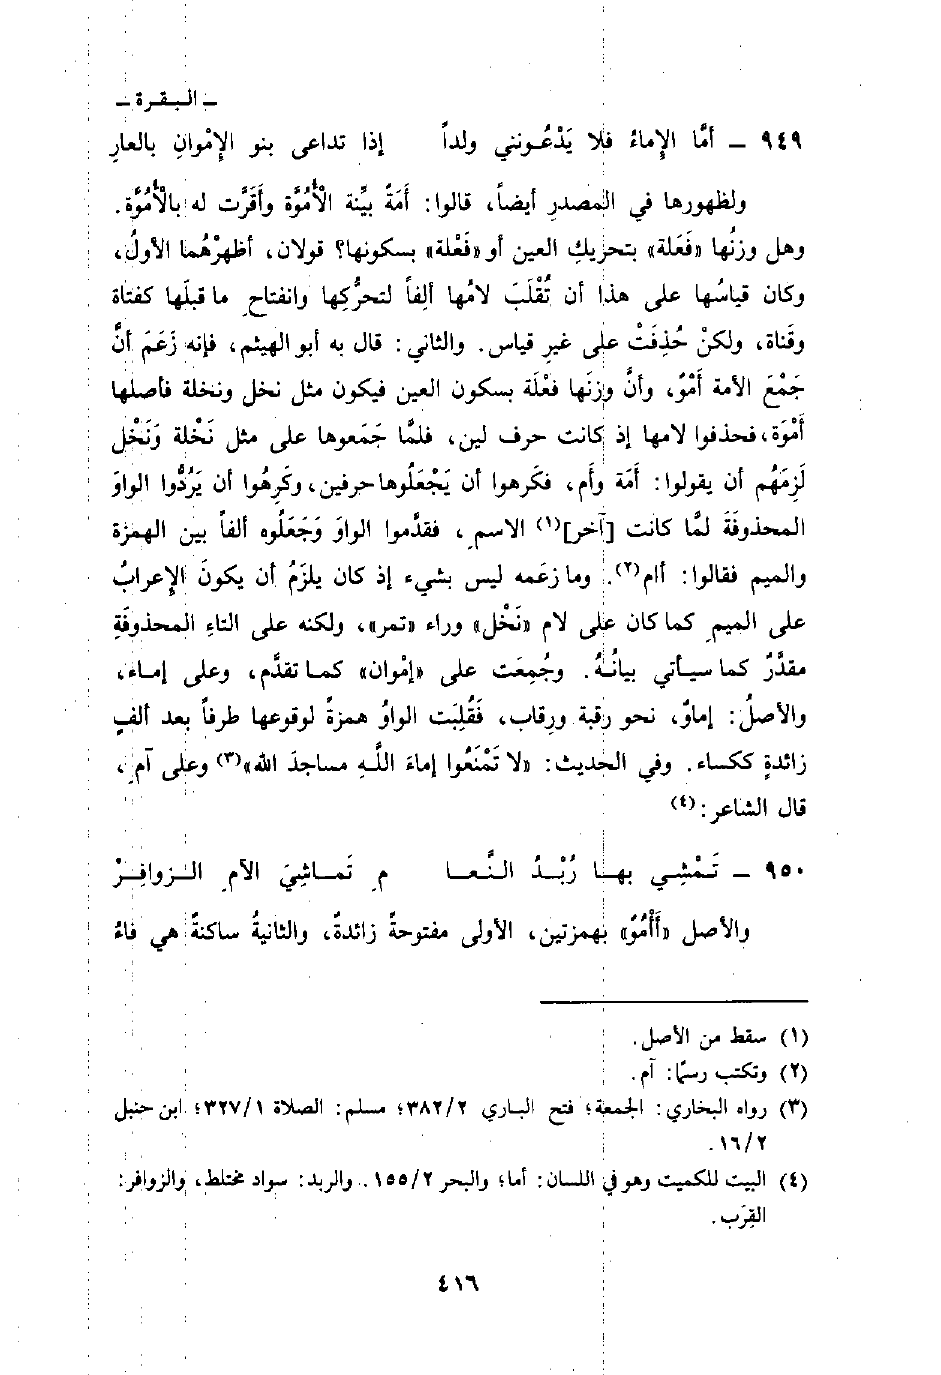 ـ البقرة ـ
٩٤٩ ـ أمَّا الإِماءُ فلا يَدْعُونني ولداً إذا تداعى بنو الإِمْوانِ بالعارِ
ولظهورها في المصدرِ أيضاً، قالوا: أَمَةٌ بيِّنة الْأُمُوَّة وأَقَرَّت له بالْأُمُوَّة.
وهل وزنُها «فَعَلة» بتحريكِ العين أو «فَعْلة» بسكونها؟ قولان، أظهرْهُما الأولُ،
وكان قياسُها على هذا أن تُقْلَبَ لامُها ألِفاً لتحرُّكِها وانفتاحِ ما قبلَها كفتاة
وقَناة، ولكنْ حُذِفَتْ على غيرِ قياس. والثاني: قال به أبو الهيثم، فإنه زَعَمَ أنَّ
جَمْعَ الأمة أَمْوٌ، وأنَّ وزنَها فَعْلَة بسكون العين فيكون مثل نخل ونخلة فأصلها
أَمْوَة، فحذفوا لامها إذ كانت حرف لين، فلمَّا جَمَعوها على مثل نَخْلة وَنَخْل
لَزِمَهُم أن يقولوا: أَمَة وأَم، فكَرهوا أن يَجْعَلُوها حرفين، وكَرِهُوا أن يَرُدُّوا الواوَ
المحذوفَةَ لمَّا كانت [آخر](١) الاسمِ، فقدَّموا الواوَ وَجَعَلُوه ألفاً بين الهمزة
والميم فقالوا: أام(٢). وما زعَمه ليس بشيء إذ كان يلزَمُ أن يكونَ الإِعرابُ
على الميمِ كما كان على لام «نَخْل» وراء «تمر»، ولكنه على التاءِ المحذوفةِ
مقدَّرٌ كما سيأتي بيانُهُ. وجُمِعَت على «إمْوان» كما تقدَّم، وعلى إماء،
والأصلُ: إماوٌ، نحو رقبة ورِقاب، فَقُلِبَت الواوُ همزةً لوقوعها طرفاً بعد ألفٍ
زائدةٍ ككساء. وفي الحديث: «لا تَمْنَعُوا إماءَ اللَّهِ مساجدَ الله»(٣) وعلى آمِ،
قال الشاعر:(٤)
٩٥٠ ـ تَمْشِي بها رُبْدُ النَّعا مِ تَماشِيَ الآمِ الزوافِرْ
والأصل «أَأْمُوٌ» بهمزتين، الأولى مفتوحةٌ زائدةٌ، والثانيةُ ساكنةٌ هي فاءُ
(١) سقط من الأصل.
(٢) وتكتب رسمًا: آم.
(٣) رواه البخاري: الجمعة؛ فتح الباري ٣٨٢/٢؛ مسلم: الصلاة ٣٢٧/١؛ ابن حنبل
١٦/٢.
(٤) البيت للكميت وهو في اللسان: أما؛ والبحر ١٥٥/٢. والربد: سواد مختلط، والزوافر:
القِرَب.
٤١٦